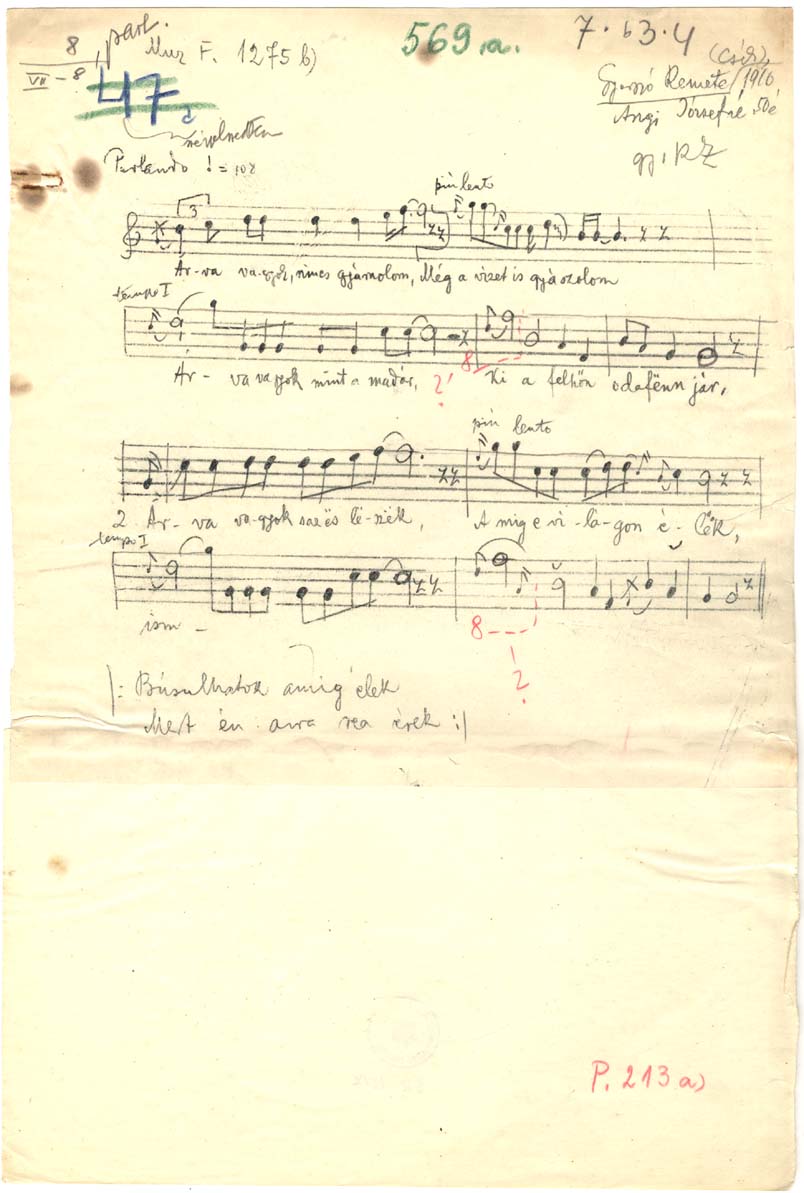 8 , parl. Muz F. 1275 b) 569.a. 7·63·4
VII - 8
(Csík),
47 Gyergyó Remete 1910
Angi Józsefné 50é
gy. KZ
Parlando ! = 108
3 più lento
Ár-va va-gyok, nincs gyámolom, Még a vizet is gyászolom
tempo I
8
Ár - va va gyok mint a madár, ? Ki a felhőn odafënn jár,
più lento
2 Ár - va va-gyok saz ës lë-szëk, A mig e vi-lá-gon é-lëk,
tempo I
ism -
8
?
|: Búsulhatok amig élek
Mert én arra rea érek :|
P. 213 a)